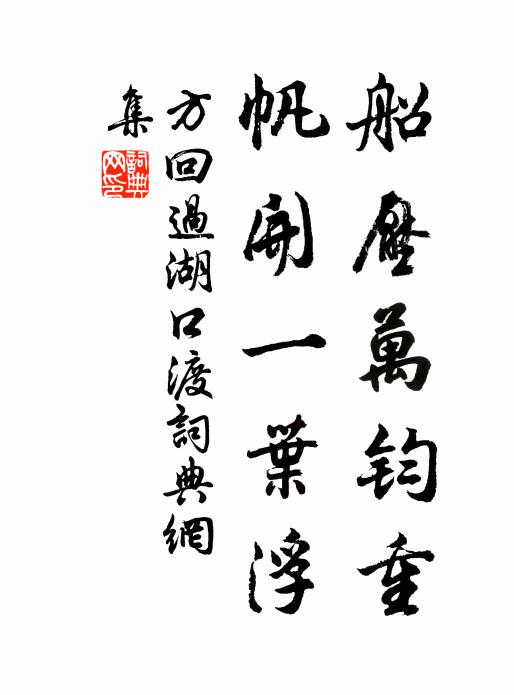 船壓萬鈞重
帆開一葉浮
方回過湖口渡詞典網
集
詞典网印